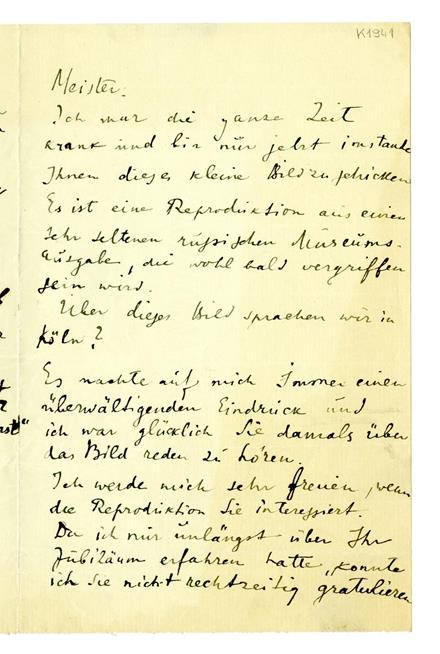 K1941
Meister.
Ich war die ganze Zeit
krank und bin nur jetzt imstande
Ihnen dieses kleine Bild zu schicken
Es ist eine Reproduktion aus einer
sehr seltenen russischen Museums-
Ausgabe, die wohl bald vergriffen
sein wird.
Über dieses Bild sprachen wir in
Köln?
Es machte auf mich Immer einen
überwältigenden Eindruck und
ich war glücklich Sie damals über
das Bild reden zu hören.
Ich werde mich sehr freuen, wenn
die Reproduktion Sie interessiert.
Da ich nur unlängst über Ihr
Jubiläum erfahren hatte, konnte
ich Sie nicht rechtzeitig gratulieren